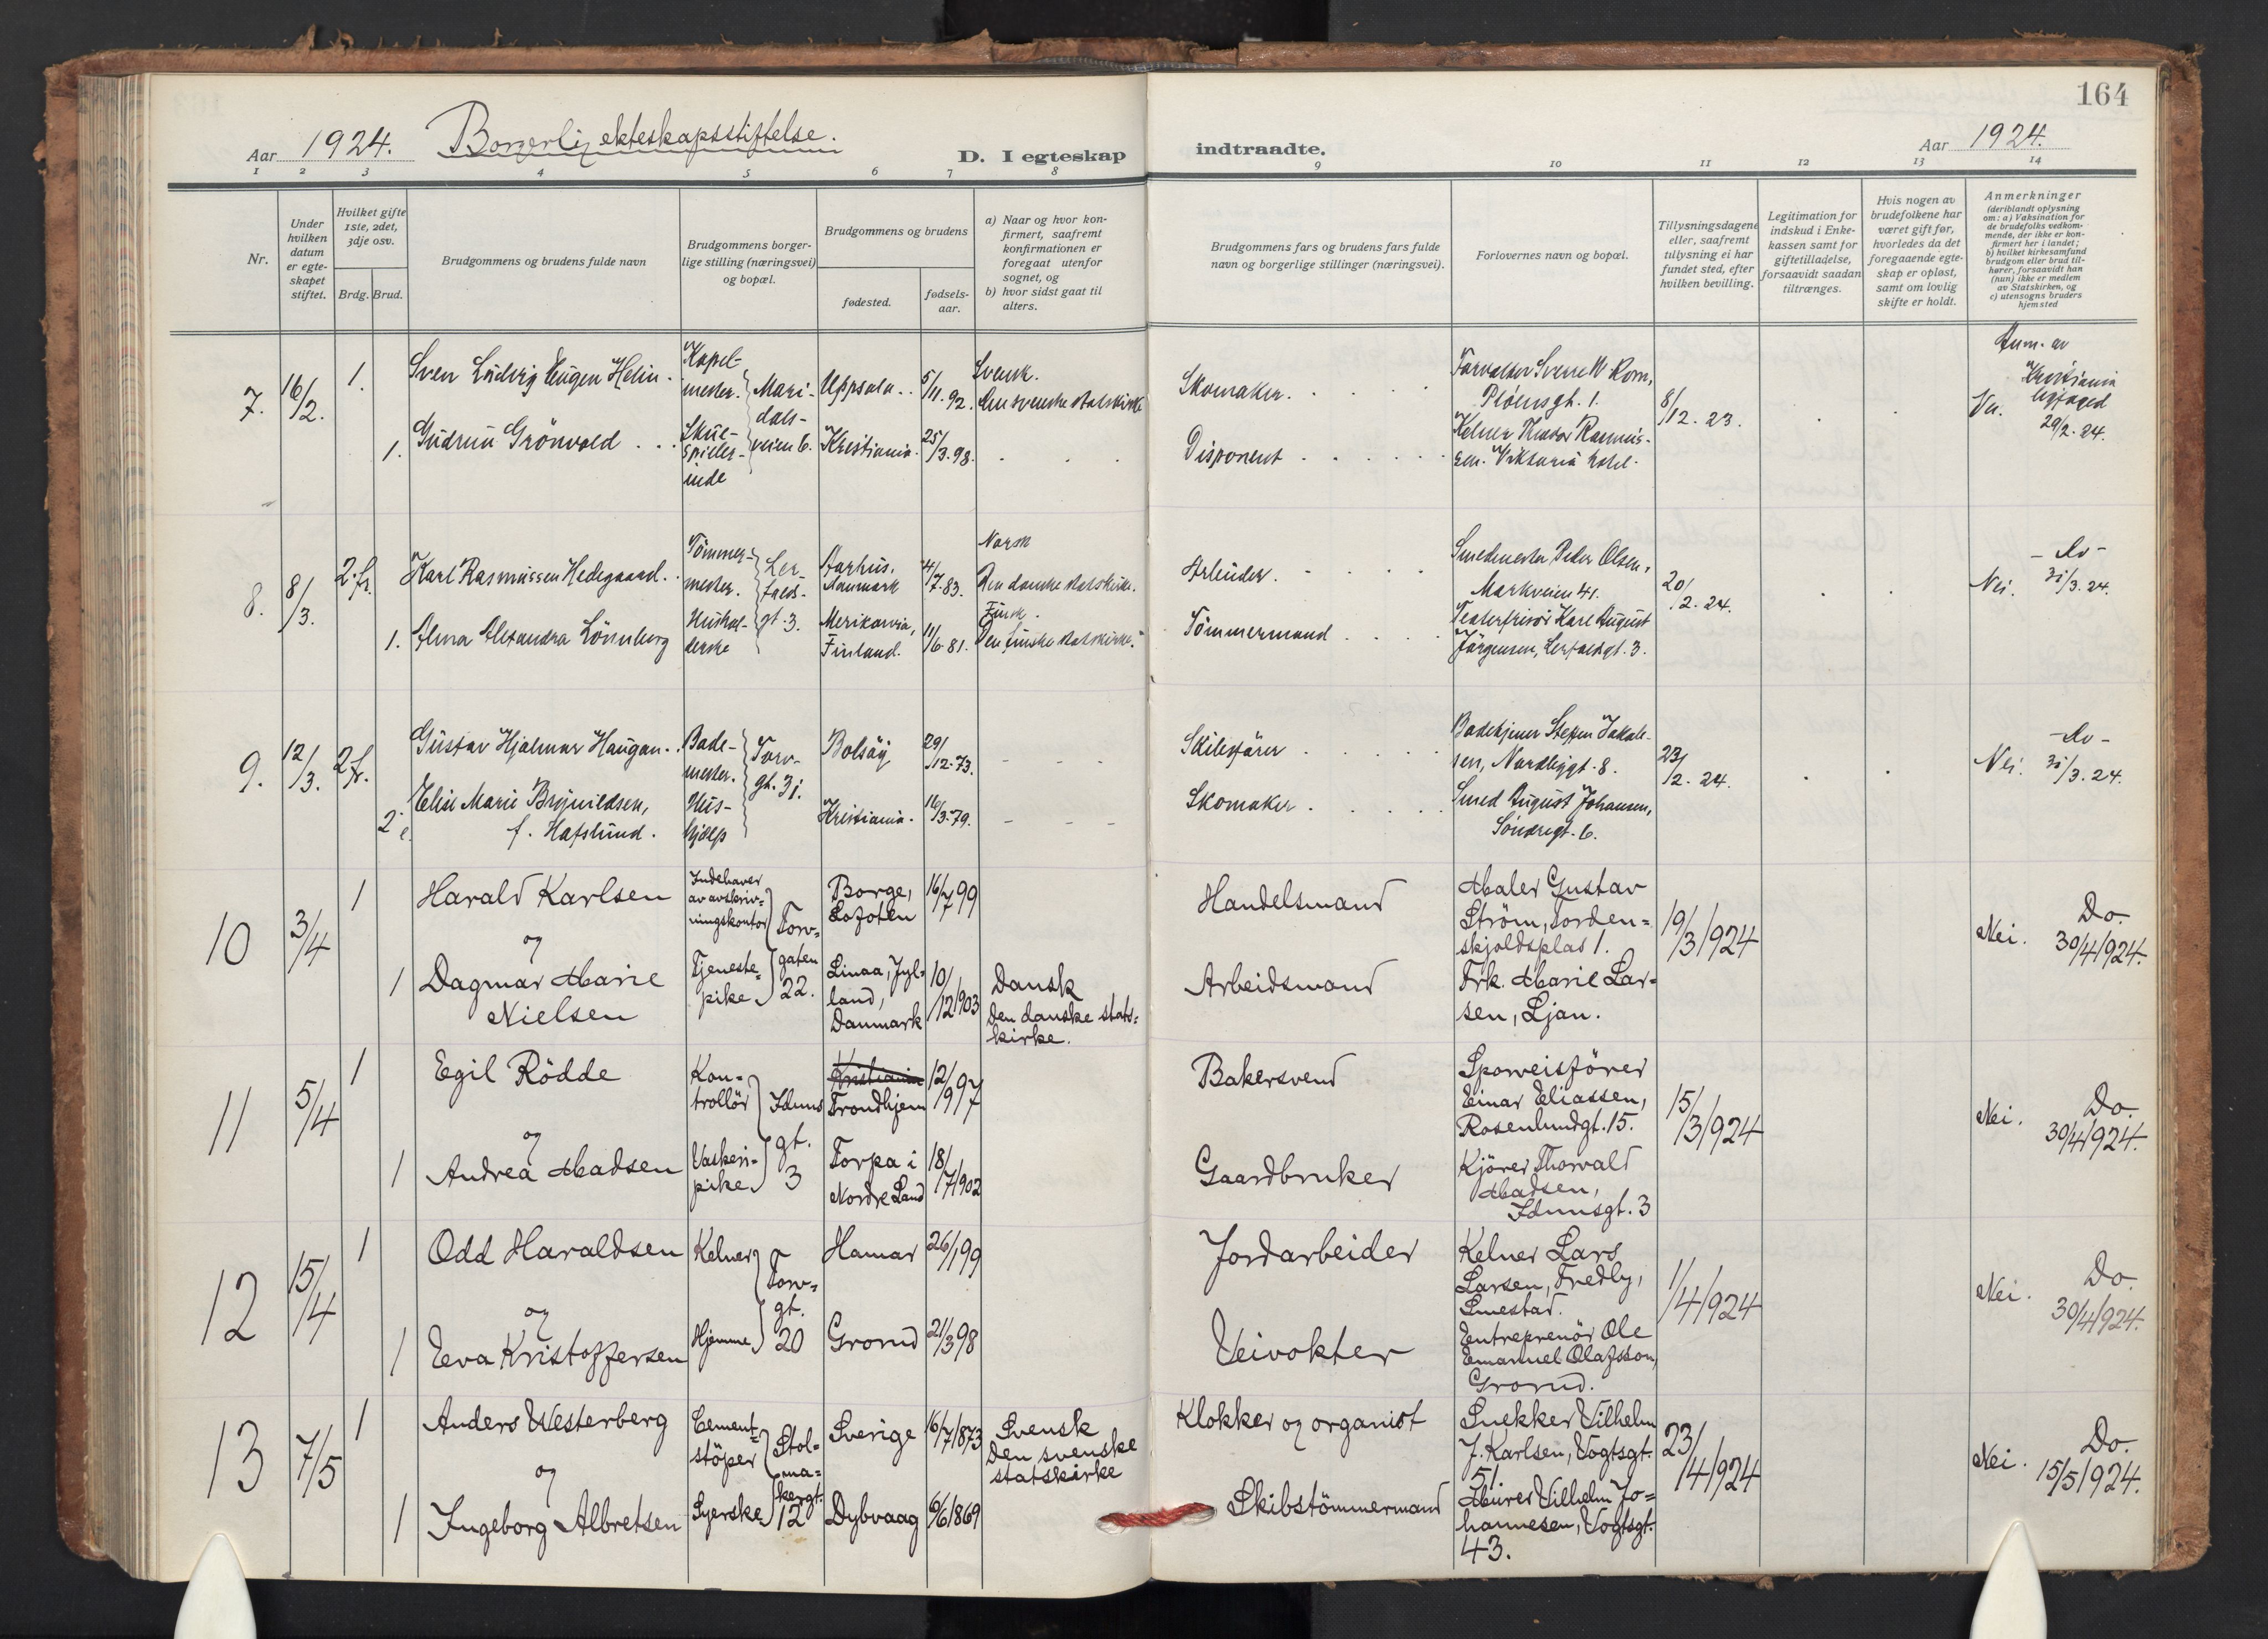 164
Aar 1924. Borgerlig ekteskapsstiftelse. D. I egteskap indtraadte. Aar 1924.
1 2 3 4 5 6 7 8 9 10 11 12 13 14
Nr.
Under
hvilken
datum
er egte-
skapet
stiftet.
Hvilket gifte
1ste, 2det,
3dje osv.
Brdg. Brud.
Brudgommens og brudens fulde navn
Brudgommens borger-
lige stilling (næringsvei)
og bopæl.
Brudgommens og brudens
fødested.
fødsels-
aar.
a) Naar og hvor kon-
firmert, saafremt
konfirmationen er
foregaat utenfor
sognet, og
b) hvor sidst gaat til
alters.
Brudgommens fars og brudens fars fulde
navn og borgerlige stillinger (næringsvei).
Forlovernes navn og bopæl.
Tillysningsdagene
eller, saafremt
tillysning ei har
fundet sted, efter
hvilken bevilling.
Legitimation for
indskud i Enke-
kassen samt for
giftetilladelse,
forsaavidt saadan
tiltrænges.
Hvis nogen av
brudefolkene har
været gift før,
hvorledes da det
foregaaende egte-
skap er opløst,
samt om lovlig
skifte er holdt.
Anmerkninger
(deriblandt oplysning
om: a) Vaksination for
de brudefolks vedkom-
mende, der ikke er kon-
firmert her i landet;
b) hvilket kirkesamfund
brudgom eller brud til-
hører, forsaavidt han
(hun) ikke er medlem
av Statskirken, og
c) utensogns bruders
hjemsted
7.
16/2.
1.
Sven Ludvig Eugen Helin.
Kapel-
mester.
Mari-
dals-
veien 6.
Uppsala.
5/11. 92.
Svensk.
Den svenske statskirke
Skomaker.
Forvalter Sverre W. Rom,
Pløensgt. 1.
8/12. 23.
Nei.
Anm. av
Kristiania
byfoged
29/2. 24.
1.
Gudrun Grönvold
Skue-
spiller-
inde
Kristiania.
25/3. 98.
Disponent
Kelner Rasmus-
sen. Viktoria hotel.
8.
8/3.
2. fr.
Karl Rasmussen Hedegaard.
Tömmer-
mester.
Ler-
falds-
gt. 3.
Aarhus,
Danmark
4/7. 83.
Norsk
Den danske statskirke.
Arbeider.
Smedmester Peder Olsen,
Markveien 41.
20/2. 24.
Nei.
- Do -
31/3. 24.
1.
Alma Alexandra Lönnberg
Hushol-
derske
Merikarvia,
Finland.
11/6. 81.
Finsk.
Den finske statskirke.
Tömmermand
Teaterfrisör Karl August
Jörgensen, Lerfaldsgt. 3.
9.
12/3.
2 fr.
Gustav Hjalmar Haugan.
Bade-
mester.
Torv-
gt. 31.
Bolsöy
29/12. 73.
Skibsförer
Badetjener Steffen Jakob-
sen, Nordbygt. 8.
23/2. 24.
Nei.
- Do -
31/3. 24.
2 e.
Elise Marie Brynildsen,
f. Hafslund.
Hus-
hjælp
Kristiania.
16/3. 79.
Skomaker.
Smed August Johansen,
Söndregt. 6.
10
3/4
1
Harald Karlsen
og
Indehaver
av avskriv-
ningskontor
Torv=
gaten
22.
Borge,
Lofoten
16/7 99
Handelsmand
Maler Gustav
Ström, Torden=
skjoldsplas 1.
19/3 1924
Nei.
Do.
30/4 1924.
1
Dagmar Marie
Nielsen
Tjeneste=
pike
Linaa, Jyl=
land,
Danmark
10/12 1903
Dansk
Den danske stats=
kirke.
Arbeidsmand
Frk. Marie Lar=
sen, Ljan.
11
5/4
1
Egil Rödde
og
Kon=
trollör
Iduns
gt.
3
Kristiania
Trondhjem
12/9 97
Bakersvend
Sporveisförer
Einar Eliassen,
Rosenlundgt. 15.
15/3 1924
Nei.
Do.
30/4 1924.
1
Andrea Madsen
Vaskeri=
pike
Torpa i
Nordre Land
18/7 1902
Gaardbruker
Kjörer Thorvald
Madsen,
Idunsgt. 3
12
15/4
1
Odd Haraldsen
og
Kelner
Torv=
gt.
20
Hamar
26/1 99
Jordarbeider
Kelner Lars
Larsen, Fredly,
Smestad.
1/4 1924
Nei.
Do.
30/4 1924.
1
Eva Kristoffersen
Hjemme
Grorud
21/3 98
Veivokter
Entreprenör Ole
Emanuel Olafsson,
Grorud.
13
7/5
1
Anders Westerberg
og
Cement=
stöper
Stol=
ma=
kergt.
12
Sverige
16/7 1873
Svensk
Den svenske
statskirke
Klokker og organist
Snekker Vilhelm
J. Karlsen, Vogtsgt.
51.
23/4 1924
Nei.
Do.
15/5 1924.
1
Ingeborg Albretsen
Syerske
Dybvaag
6/6 1869
Skibstömmermand
Murer Vilhelm Jo=
hannesen, Vogtsgt.
43.